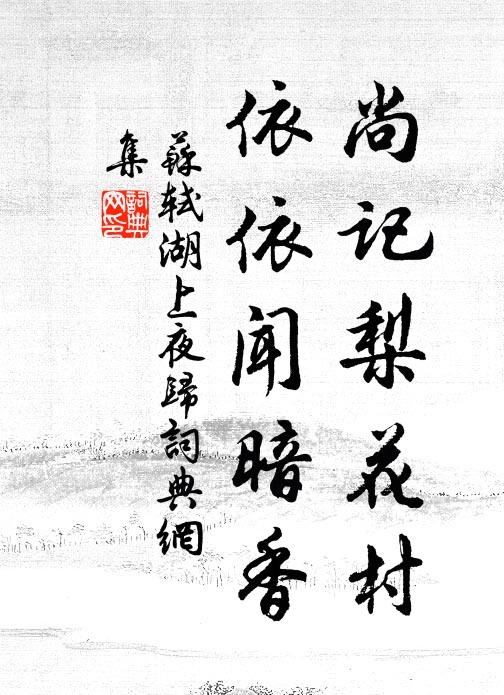 尚记梨花村
依依闻暗香
蘇軾湖上夜歸詞典網
集
詞典
网印